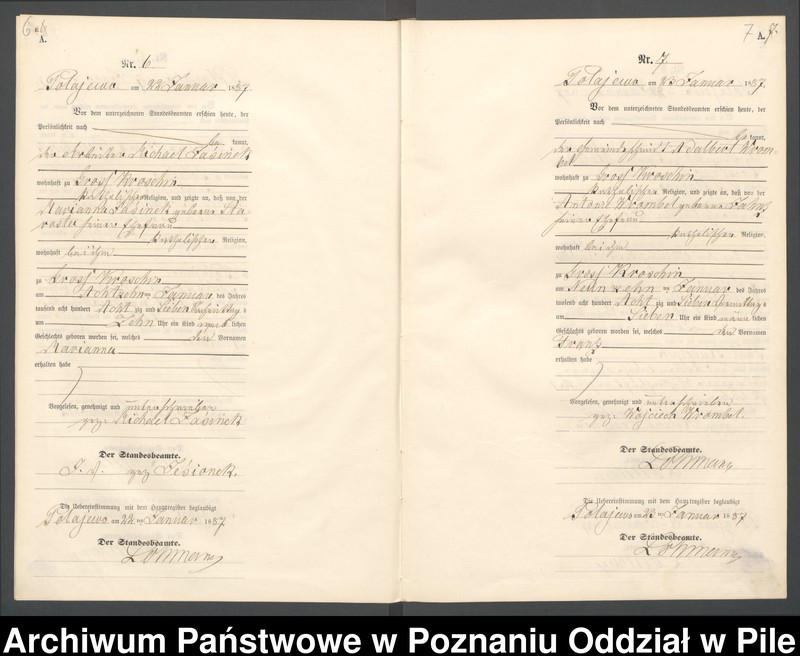 6
A.
Nr. 6
Polajewo am 22 Januar 1887
Vor dem unterzeichneten Standesbeamten erschien heute, der
Persönlichkeit nach
kannt,
der Arbeiter Michael Jasinek
wohnhaft zu Gross Kroschin
katholischer Religion, und zeigte an, daß von der
Marianna Jasinek geborene Sta-
roste seiner Ehefrau
katholischer Religion,
wohnhaft bei ihm
zu Gross Kroschin
am Achtzehn ten Januar des Jahres
tausend acht hundert Acht zig und Sieben
um Zehn Uhr ein Kind lichen
Geschlechts geboren worden sei, welches den Vornamen
Marianna
erhalten habe
Vorgelesen, genehmigt und unterschrieben
gez. Michael Jasinek
Der Standesbeamte.
J. V. gez Jesionek.
Die Uebereinstimmung mit dem Hauptregister beglaubigt
Polajewo am 22 ten Januar 1887
Der Standesbeamte.
Lohmann
7 A. 7.
Nr. 7
Polajewo am 23 Januar 1887
Vor dem unterzeichneten Standesbeamten erschien heute, der
Persönlichkeit nach
kannt,
der Gemeindeschmidt Adalbert Wrom-
bel
wohnhaft zu Gross Kroschin
katholischer Religion, und zeigte an, daß von der
Antonie Wrombel geborene
seiner Ehefrau
katholischer Religion,
wohnhaft bei ihm
zu Gross Kroschin
am Neun zehn ten Januar des Jahres
tausend acht hundert Acht zig und Sieben
um Sieben Uhr ein Kind männ lichen
Geschlechts geboren worden sei, welches den Vornamen
Franz
erhalten habe
Vorgelesen, genehmigt und unterschrieben
gez. Wojciech Wrombel.
Der Standesbeamte.
Lohmann
Die Uebereinstimmung mit dem Hauptregister beglaubigt
Polajewo am 23 ten Januar 1887
Der Standesbeamte.
Lohmann
Archiwum Państwowe w Poznaniu Oddział w Pile